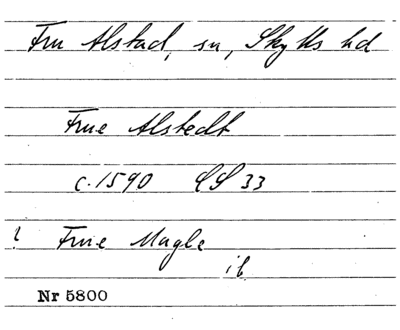 Fru Alstad, sn, Skytts hd
Frue Alstedt
c. 1590 LS 33
? Frue Magle
ib.
Nr 5800